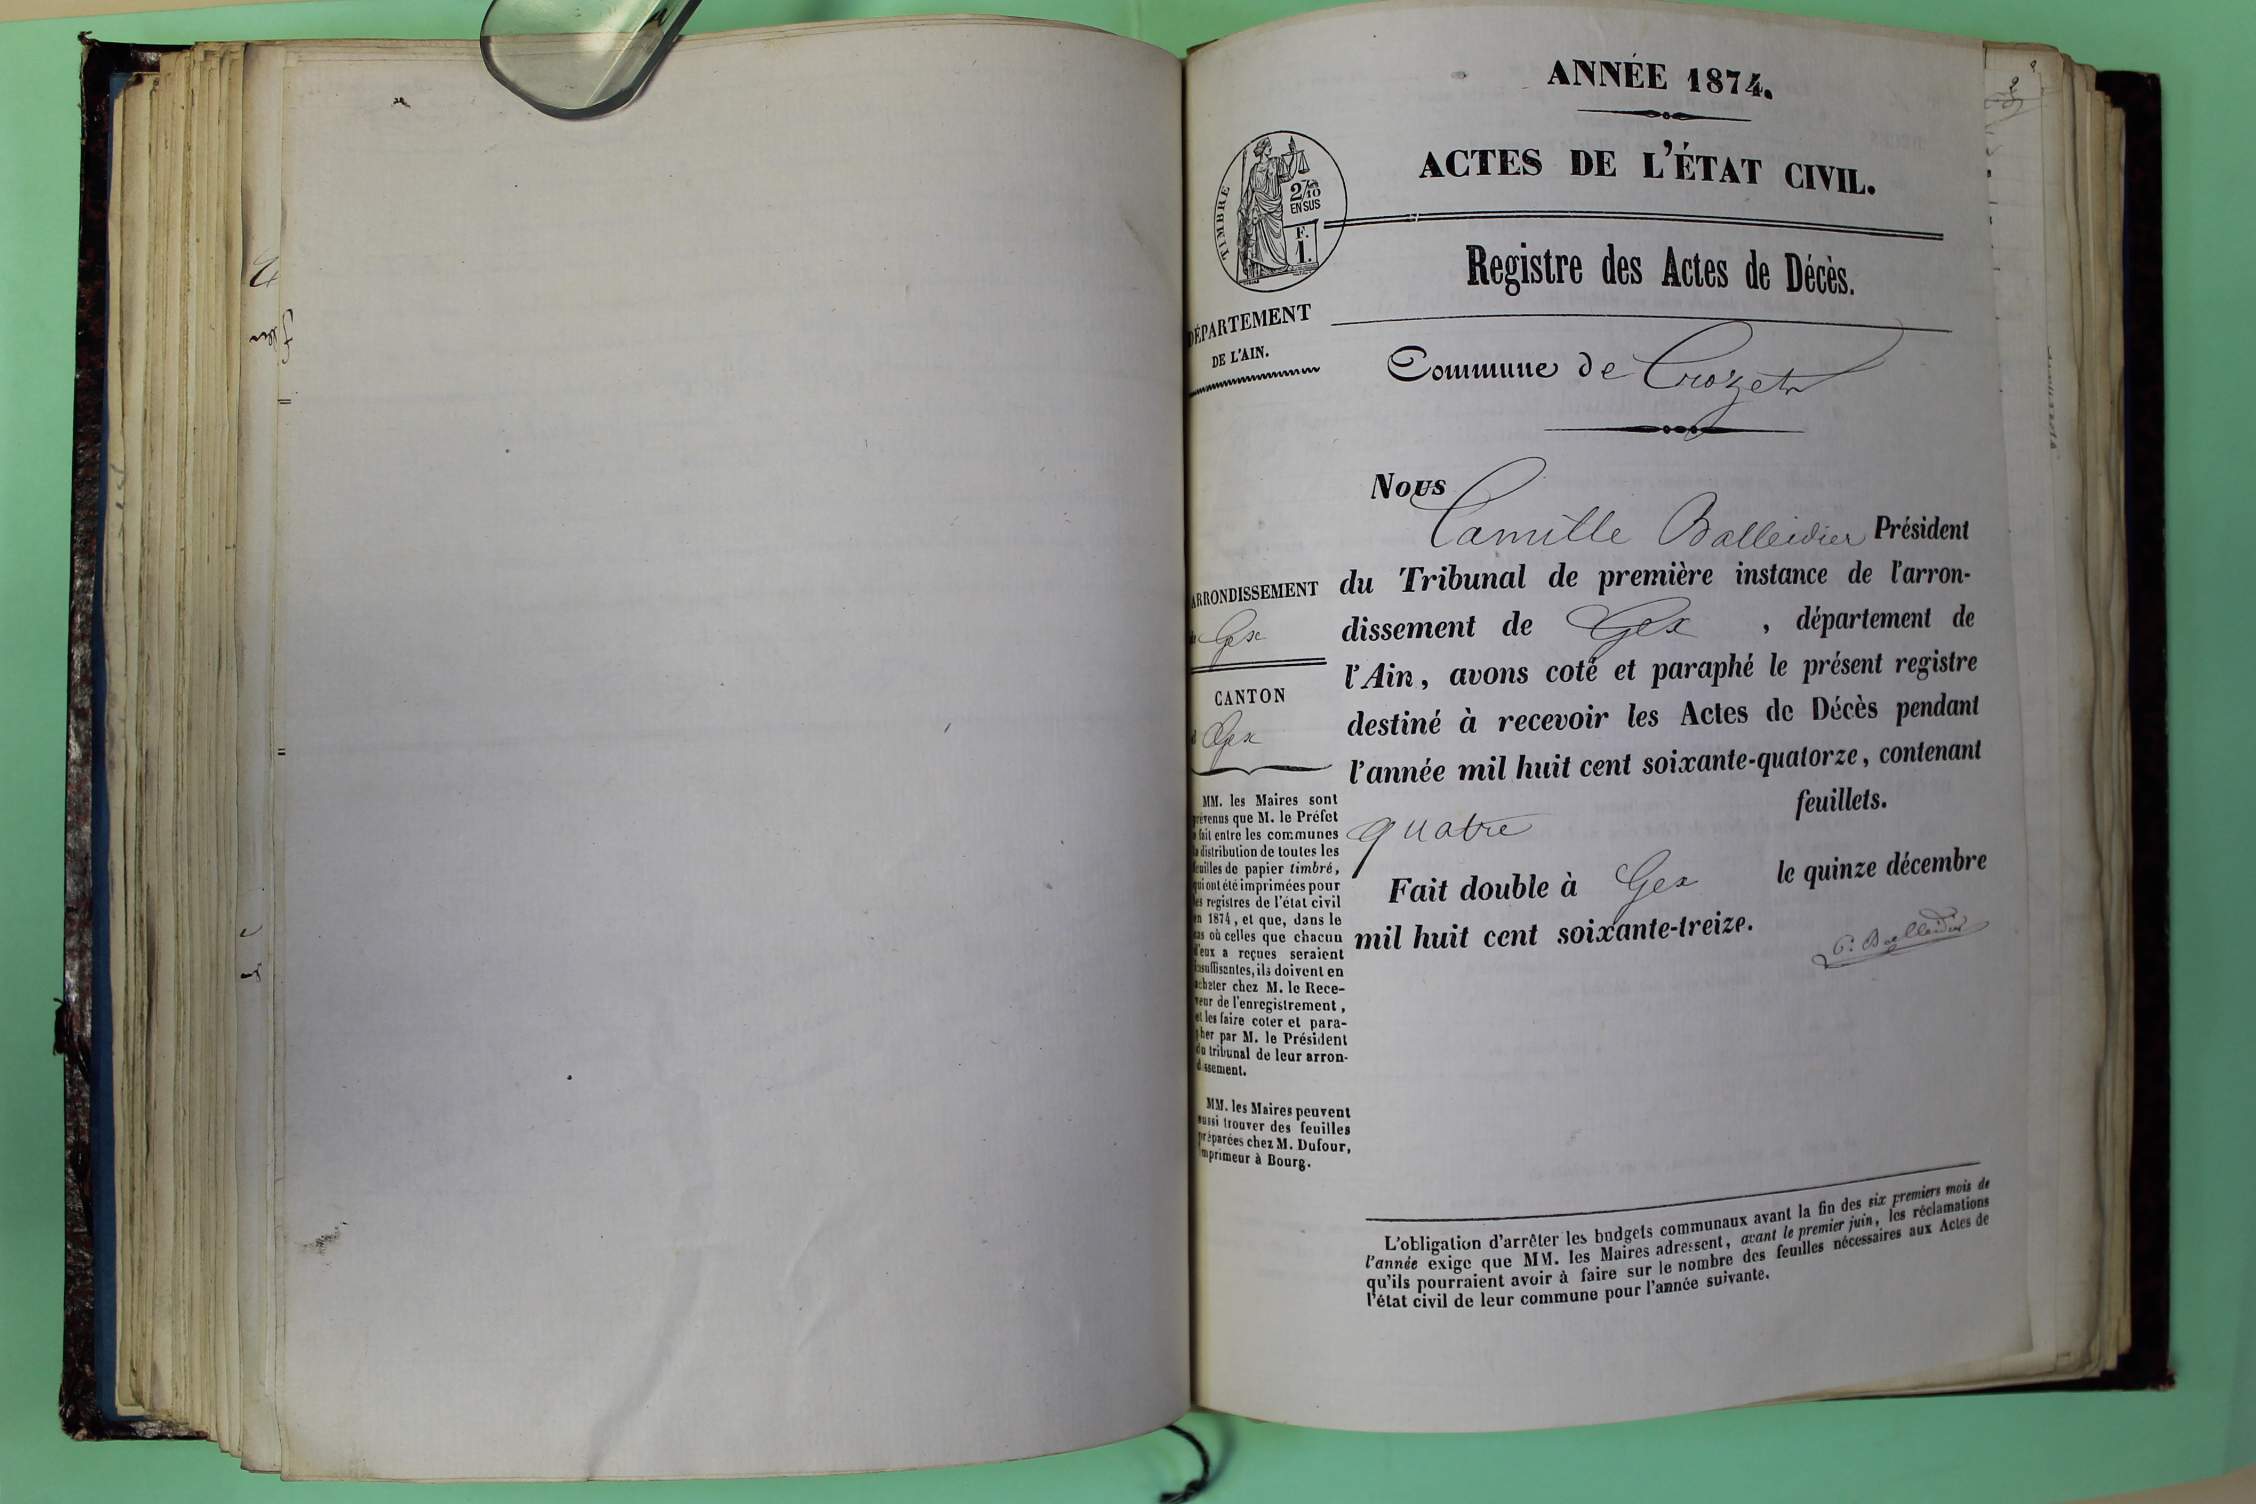 ANNÉE 1874.
ACTES DE L'ÉTAT CIVIL.
TIMBRE
2/10
EN SUS
F.
1.
Registre des Actes de Décès.
DÉPARTEMENT
DE L'AIN.
Commune de Crozet
Nous
Camille Balleidier Président
du Tribunal de première instance de l'arron-
dissement de Gex , département de
l'Ain, avons coté et paraphé le présent registre
destiné à recevoir les Actes de Décès pendant
l'année mil huit cent soixante-quatorze, contenant
quatre feuillets.
Fait double à Gex le quinze décembre
mil huit cent soixante-treize.
C. Balleidier
ARRONDISSEMENT
de Gex
CANTON
d Gex
MM. les Maires sont
prévenus que M. le Préfet
a fait entre les communes
la distribution de toutes les
feuilles de papier timbré,
qui ont été imprimées pour
les registres de l'état civil
en 1874, et que, dans le
cas où celles que chacun
d'eux a reçues seraient
insuffisantes, ils doivent en
acheter chez M. le Rece-
veur de l'enregistrement,
et les faire coter et para-
pher par M. le Président
du tribunal de leur arron-
dissement.
MM. les Maires peuvent
aussi trouver des feuilles
préparées chez M. Dufour,
imprimeur à Bourg.
L'obligation d'arrêter les budgets communaux avant la fin des six premiers mois de
l'année exige que MM. les Maires adressent, avant le premier juin, les réclamations
qu'ils pourraient avoir à faire sur le nombre des feuilles nécessaires aux Actes de
l'état civil de leur commune pour l'année suivante.